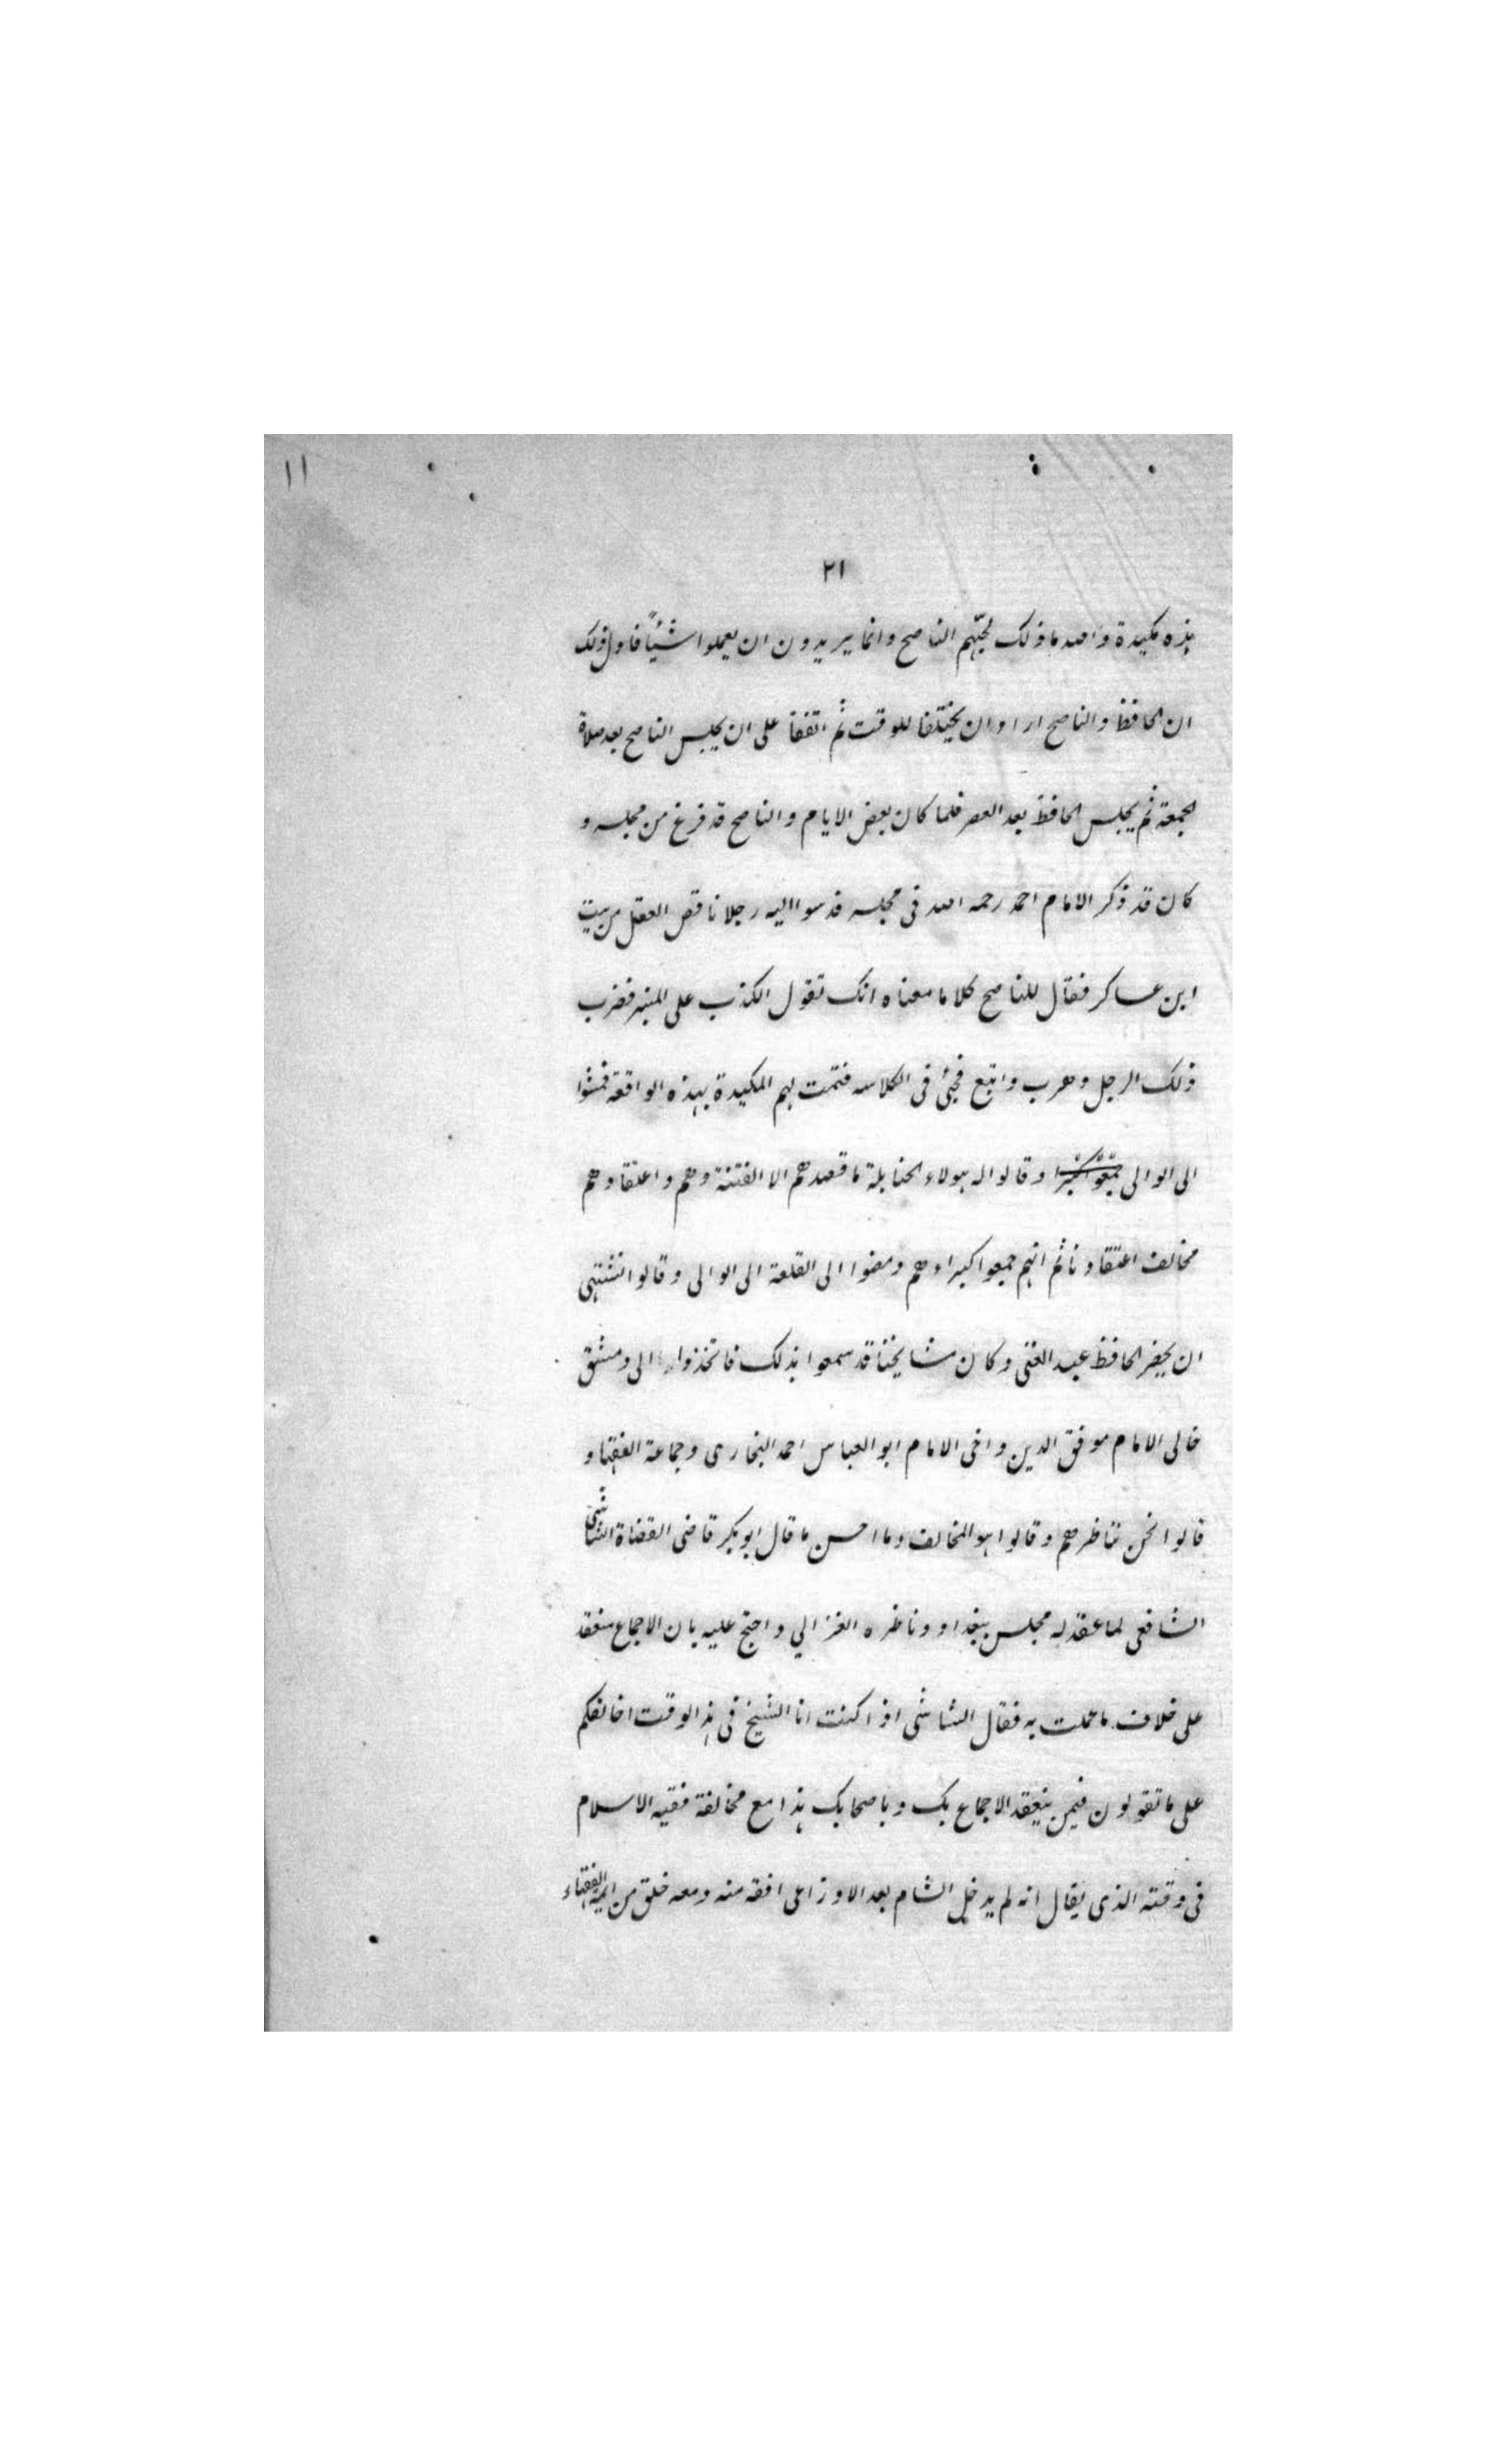 ١١
٢١
هذه مكيدة والله ما ذلك لحبهم الناصح وانما يريدون ان يعملوا شيئاً فاول ذلك
ان الحافظ والناصح ارادا ان يختلفا للوقت ثم اتفقا على ان يجلس الناصح بعد صلاة
الجمعة ثم يجلس الحافظ بعد العصر فلما كان بعض الايام والناصح قد فرغ من مجلسه و
كان قد ذكر الامام احمد رحمه الله فى مجلسه فدسوا اليه رجلا ناقص العقل من بيت
ابن عساكر فقال للناصح كلاما معناه انك تقول الكذب على المنبر فضرب
ذلك الرجل وهرب واتبع فخبئ فى الكلاسه فتمت لهم المكيدة بهذه الواقعة فمشوا
الى الوالى وقالوا له هولاء الحنابلة ما قصدهم الا الفتنة وهم واعتقادهم
مخالف اعتقادنا ثم انهم جمعوا كبراءهم ومضوا الى القلعة الى الوالى وقالوا نشتهى
ان يحضر الحافظ عبد الغنى وكان مشايخنا قد سمعوا بذلك فاتخذوا الى دمشق
خالى الامام موفق الدين واخى الامام ابو العباس احمد البخارى وجماعة الفقها و
قالوا نحن نناظرهم وقالوا هو المخالف وما احسن ما قال ابو بكر قاضى القضاة الشاشى
الشافعى لما عقد له مجلس ببغداد وناظره الغزالي واحتج عليه بان الاجماع منعقد
على خلاف ما عملت به فقال الشاشى اذا كنت انا الشيخ فى هذا الوقت اخالفكم
على ما تقولون فبمن ينعقد الاجماع بك وباصحابك هذا مع مخالفة فقيه الاسلام
فى وقته الذى يقال انه لم يدخل الشام بعد الاوزاعى افقه منه ومعه خلق من ايمة الفقهاء